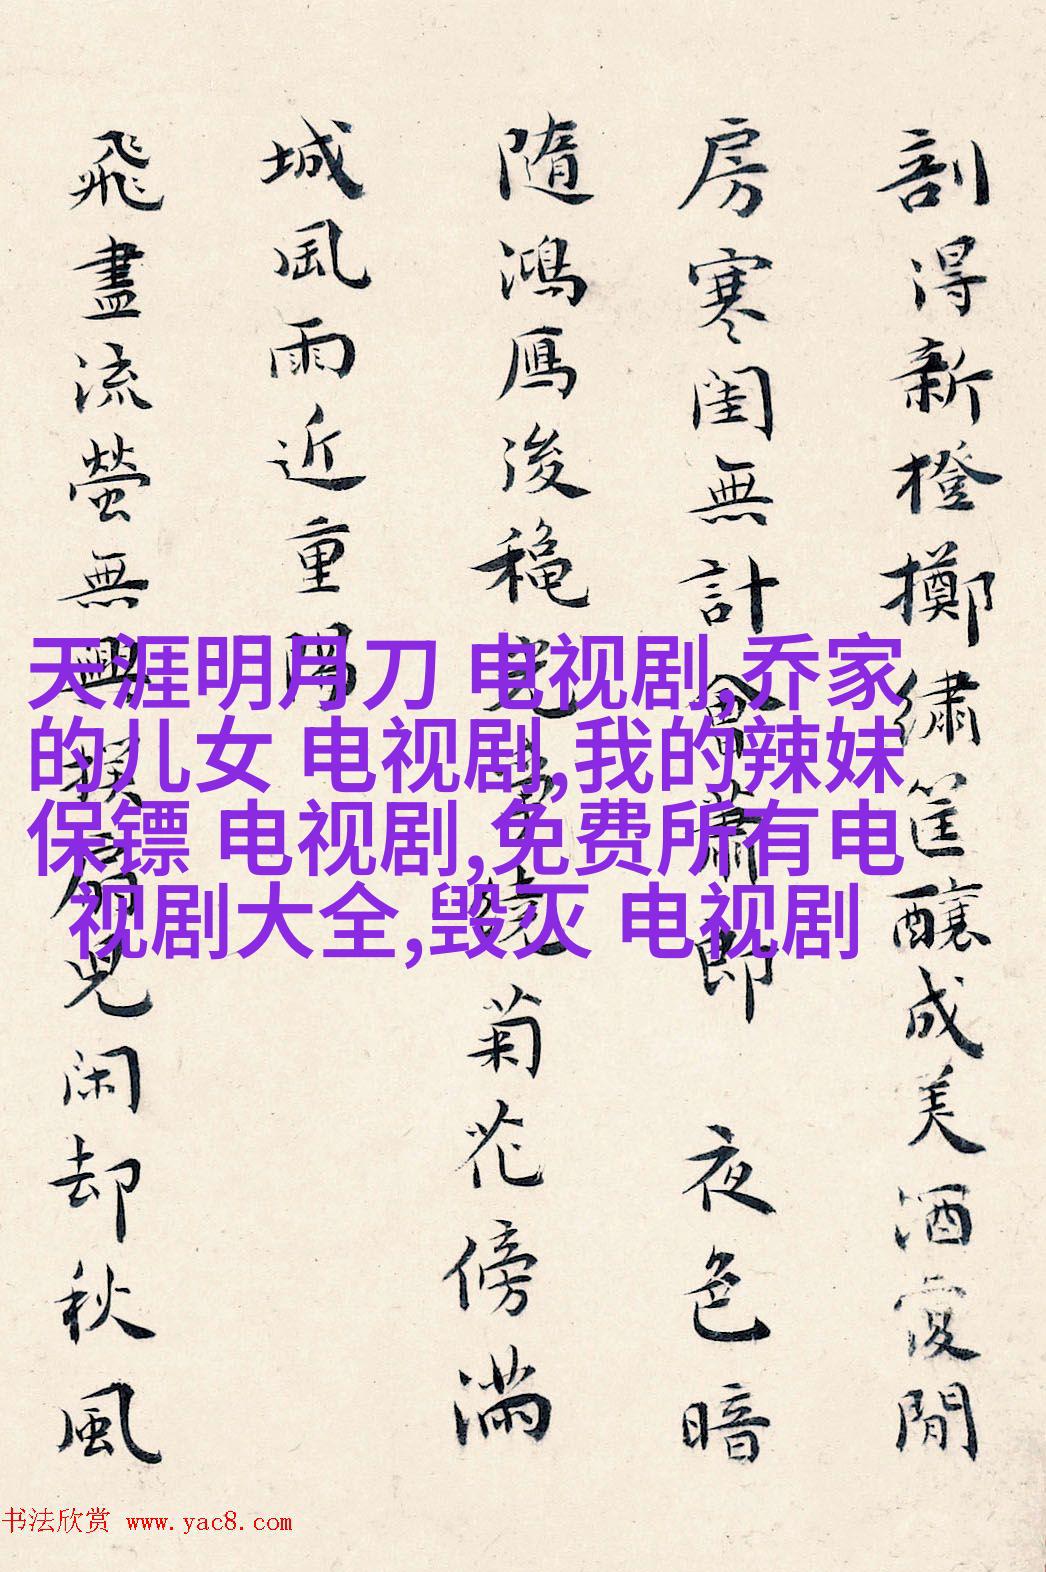 剖得新橙擲繡筐釀成美酒閒
房寒閨無計留蕭郎 夜色暗
隨鴻鴈後穐菊花傍滿
城風雨近重陽
飛盡流螢無興撲扇兒闲却秋風
天涯明月刀 电视剧,乔家
的儿女 电视剧,我的辣妹
保镖 电视剧,免费所有电
视剧大全,毁灭 电视剧
书法欣赏 www.yac8.com